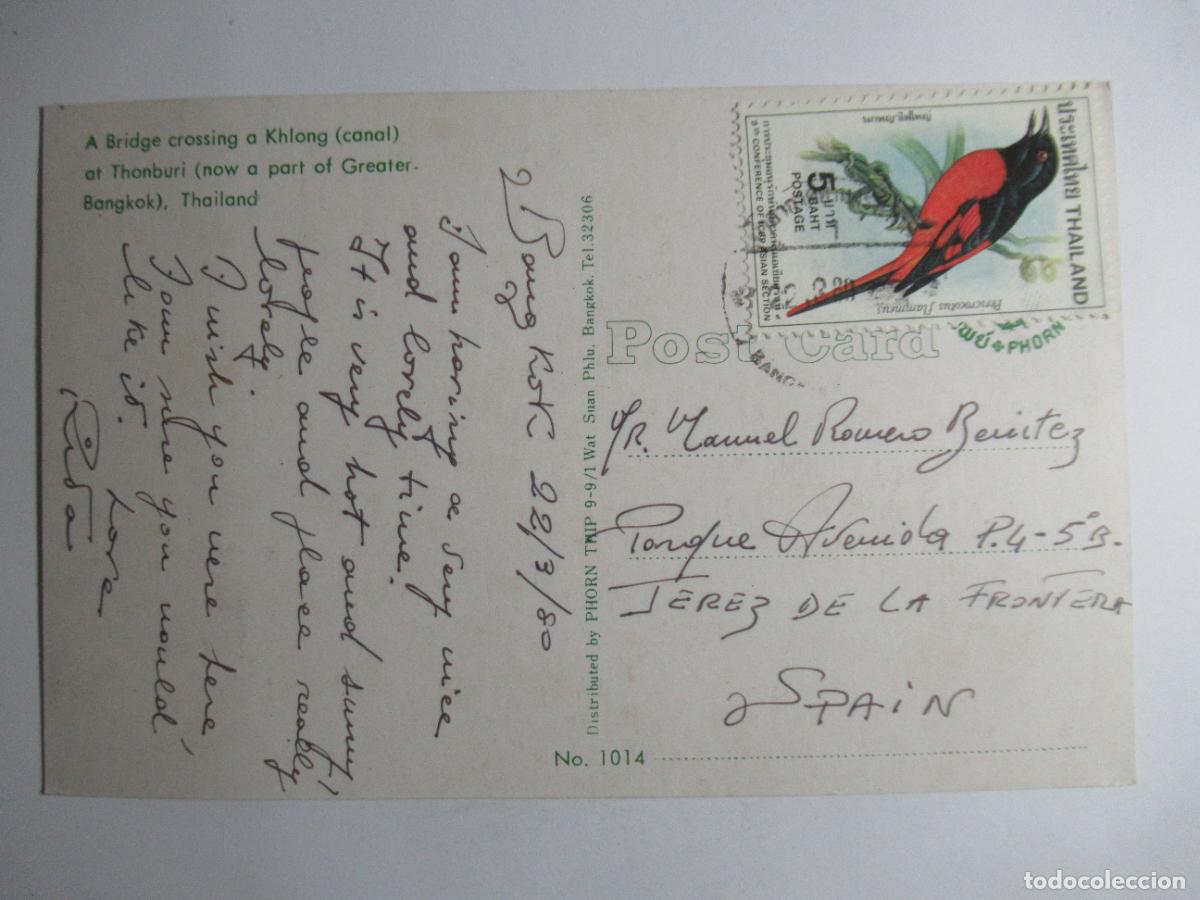 A Bridge crossing a Khlong (canal)
at Thonburi (now a part of Greater-
Bangkok), Thailand
Bangkok 22/3/80
I am having a very nice
and lovely time.
It is very hot and sunny!
people and place really
lovely.
I wish you were here
I am sure you would
like it.
Love
Rita
Distributed by PHORN THIP 9-9/1 Wat Suan Phlu. Bangkok. Tel.32306
Post Card
No. 1014
ประเทศไทย THAILAND
5 บาท
BAHT
POSTAGE
9th CONFERENCE OF ICBP ASIAN SECTION
Pericrocotus flammeus
นกพญาไฟใหญ่
PHORN
SR. Manuel Romero Benitez
Parque Avenida P.4-5ºB.
JEREZ DE LA FRONTERA
SPAIN
todocoleccion